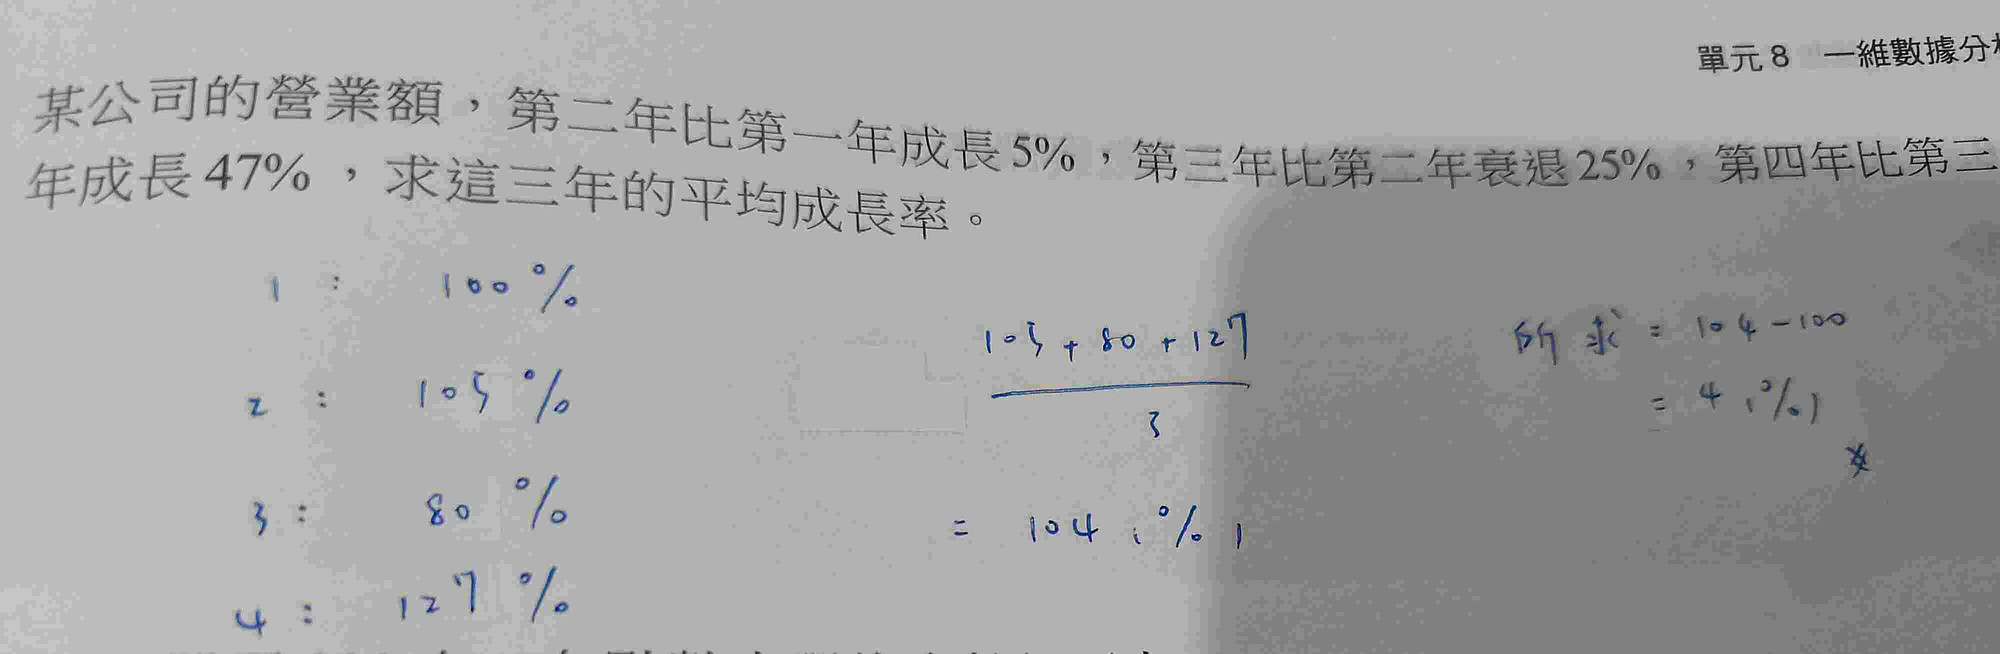 單元 8 一維數據分
某公司的營業額，第二年比第一年成長 5%，第三年比第二年衰退 25%，第四年比第三
年成長 47%，求這三年的平均成長率。
1 : 100%
2 : 105%
3 : 80%
4 : 127%
105 + 80 + 127
3
= 104 (%)
所求 = 104 - 100
= 4 (%)